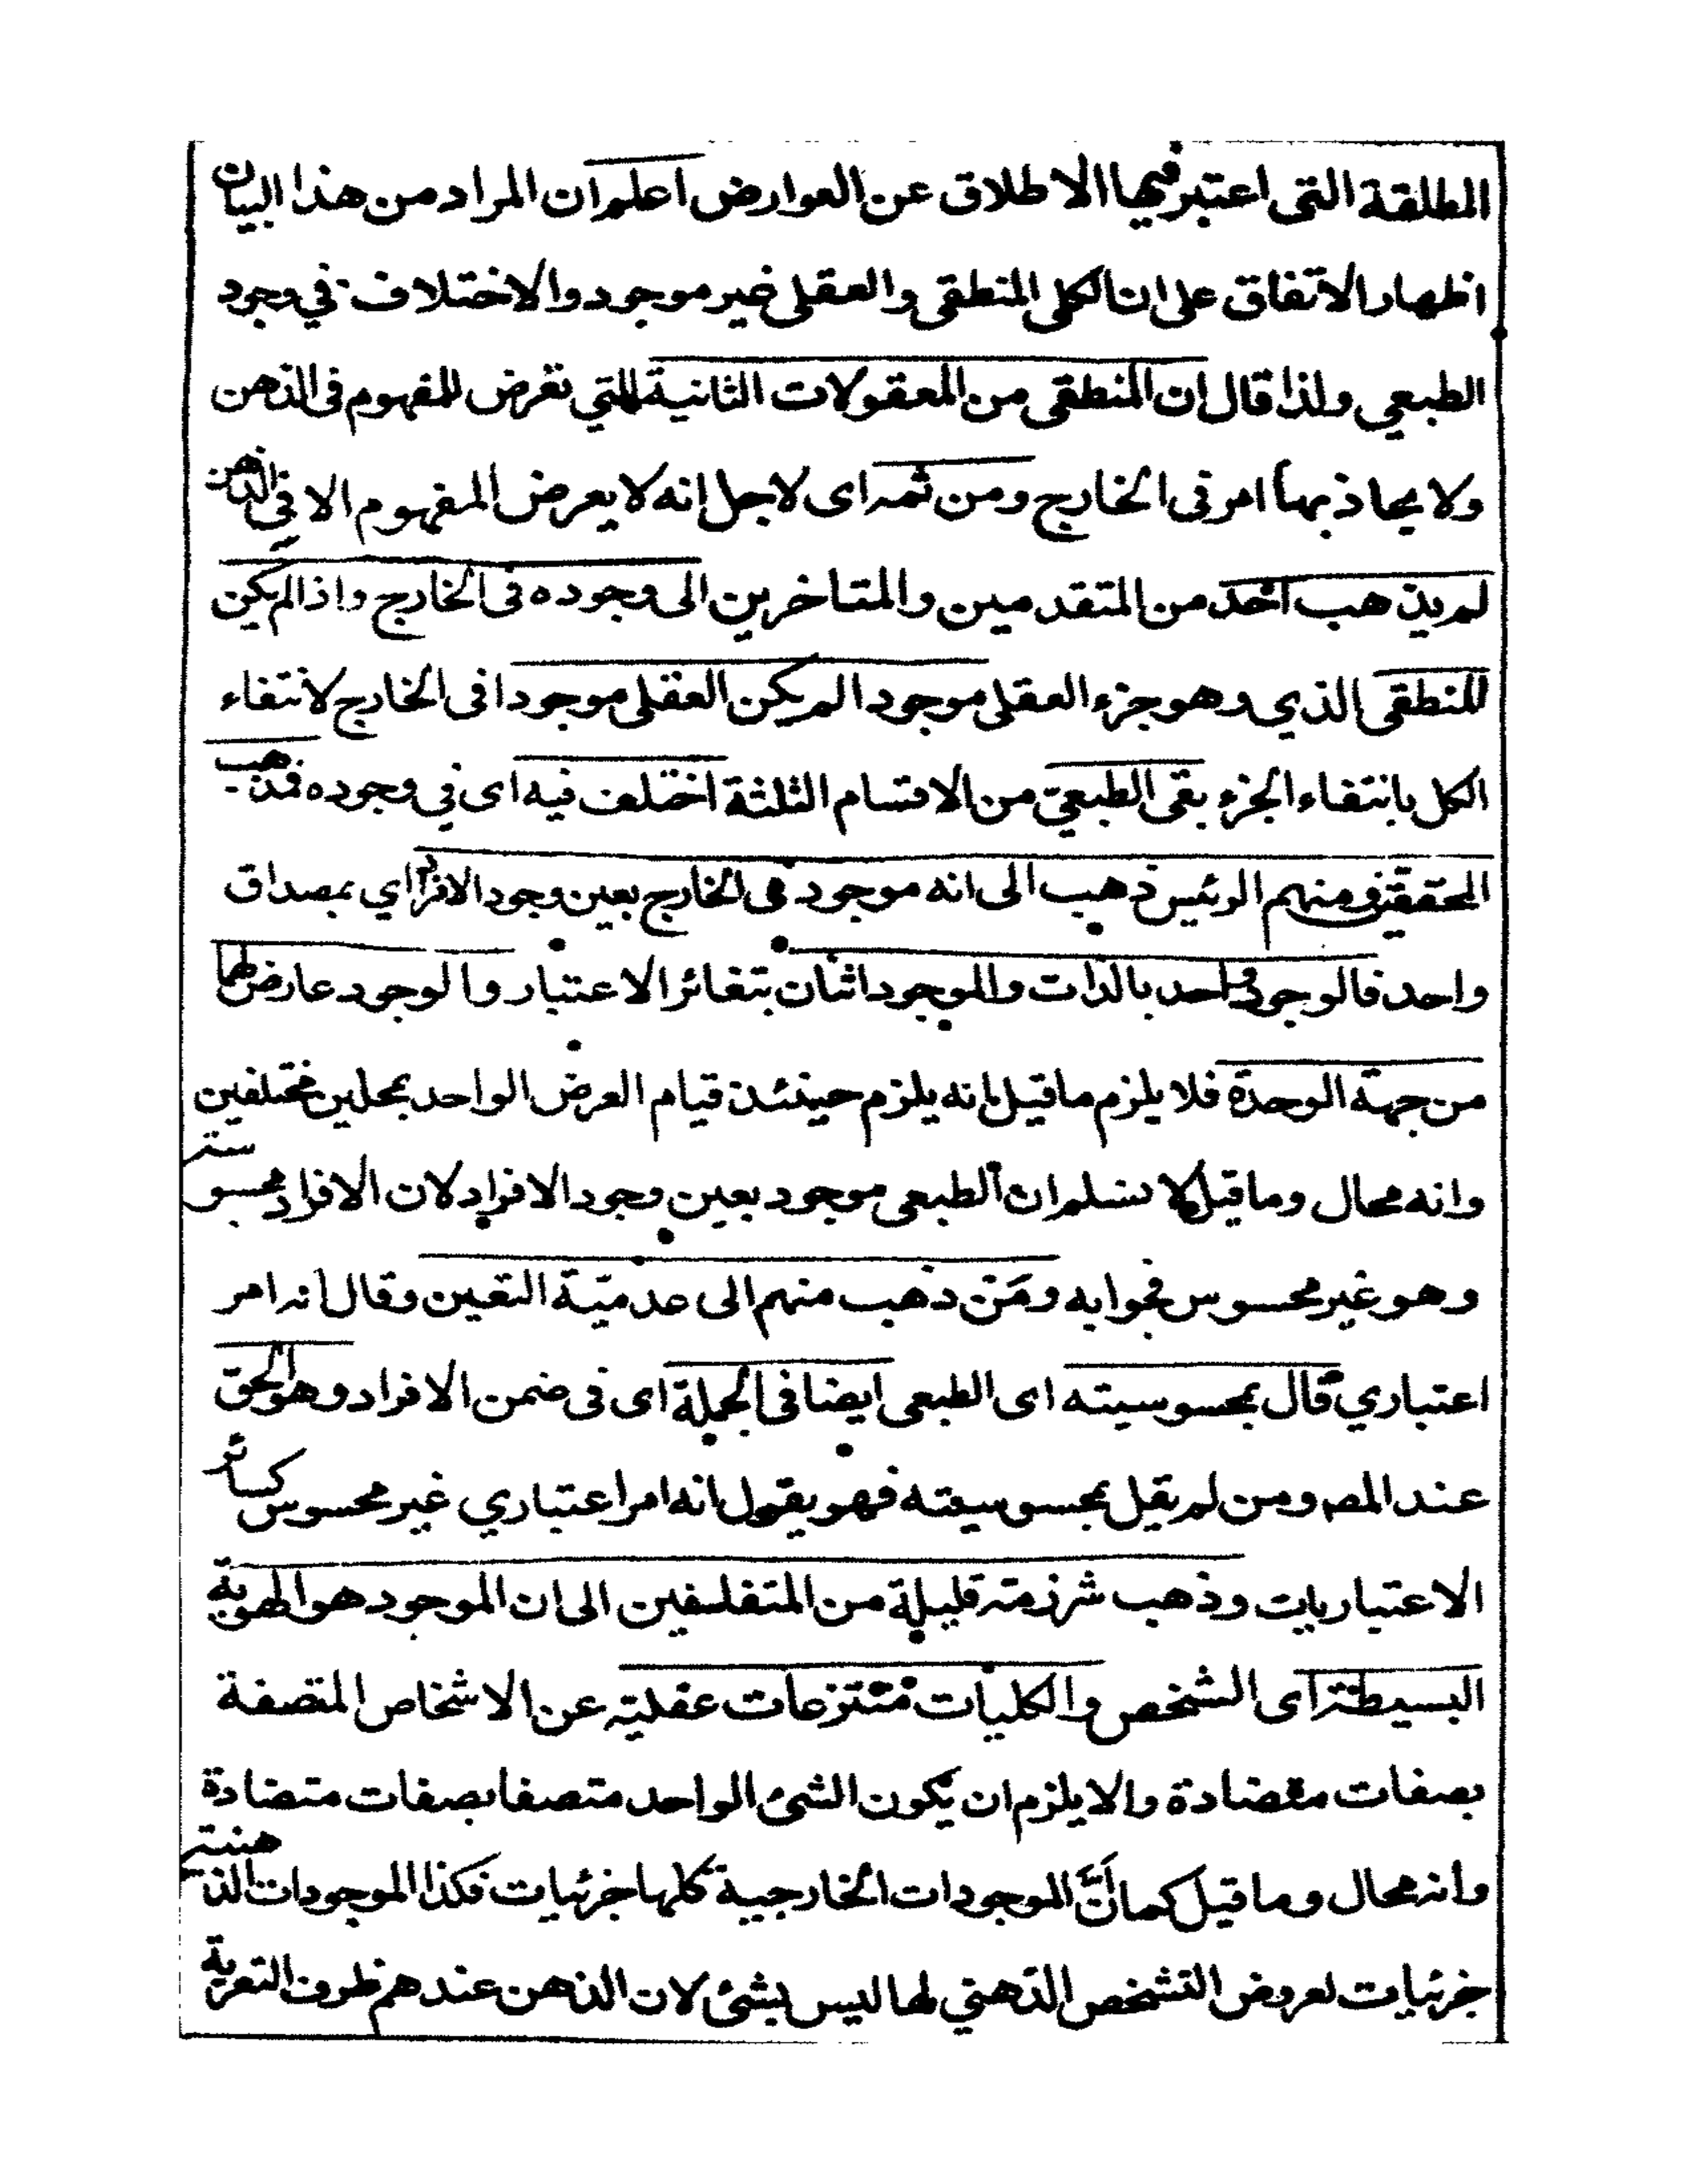 المطلقة التى اعتبر فيها الاطلاق عن العوارض اعلم ان المراد من هذا البيان
اظهار الاتفاق على ان الكلى المنطقى والعقلى غير موجود والاختلاف في وجود
الطبعي ولذا قال ان المنطقى من المعقولات الثانية التي تعرض للمفهوم فى الذهن
ولا يحاذ بها امر فى الخارج ومن ثمه اى لاجل انه لا يعرض المفهوم الا في الذهن
لم يذهب احد من المتقدمين والمتاخرين الى وجوده فى الخارج واذا لم يكن
المنطقى الذي وهو جزء العقلى موجودا لم يكن العقلى موجودا فى الخارج لانتفاء
الكل بانتفاء الجزء بقى الطبعيّ من الاقسام الثلثة اختلف فيه اى في وجوده فذهب
المحققين ومنهم الرئيس ذهب الى انه موجود فى الخارج بعين وجود الافراد اي بمصداق
واحد فالوجود واحد بالذات والموجود اثنان بتغائر الاعتبار والوجود عارض لهما
من جهة الوحدة فلا يلزم ما قيل بانه يلزم حينئذ قيام العرض الواحد بمحلين مختلفين
وانه محال وما قيل لا نسلم ان الطبعى موجود بعين وجود الافراد لان الافراد محسوسة
وهو غير محسوس فجوابه ومَن ذهب منهم الى عدميّة التعين وقال انه امر
اعتباري قال بمحسوسيته اى الطبعى ايضا فى الجملة اى فى ضمن الافراد وهو الحق
عند المصـ ومن لم يقل بمحسوسيته فهو يقول انه امر اعتباري غير محسوس كسائر
الاعتباريات وذهب شرزمة قليلة من المتفلسفين الى ان الموجود هو الهوية
البسيطة اى الشخص والكليات منتزعات عقلية عن الاشخاص المتصفة
بصفات متضادة والا يلزم ان يكون الشئ الواحد متصفا بصفات متضادة
وانه محال وما قيل كما انَّ الموجودات الخارجية كلها جزئيات فكذا الموجودات الذهنية
جزئيات لعروض التشخص الذهني لها ليس بشئ لان الذهن عندهم ظرف التعرية